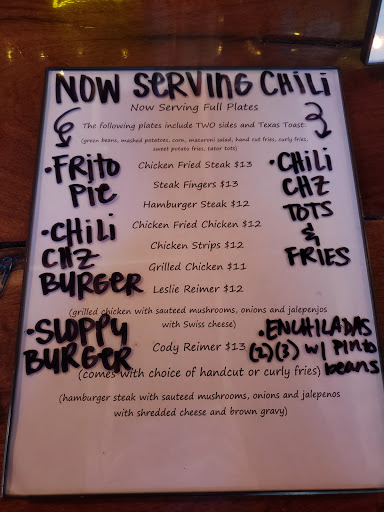 NOW SERVING CHILI
Now Serving Full Plates
The following plates include TWO sides and Texas Toast:
(green beans, mashed potatoes, corn, macaroni salad, hand cut fries, curly fries,
sweet potato fries, tator tots)
• FRITO
PIE
• CHILI
CHZ
BURGER
• SLOPPY
BURGER
Chicken Fried Steak $13
Steak Fingers $13
Hamburger Steak $12
Chicken Fried Chicken $12
Chicken Strips $12
Grilled Chicken $11
Leslie Reimer $12
(grilled chicken with sauteed mushrooms, onions and jalepenjos
with Swiss cheese)
Cody Reimer $13
(comes with choice of handcut or curly fries)
(hamburger steak with sauteed mushrooms, onions and jalepenos
with shredded cheese and brown gravy)
• CHILI
CHZ
TOTS
&
FRIES
• ENCHILADAS
(2)(3) w/ Pinto
beans